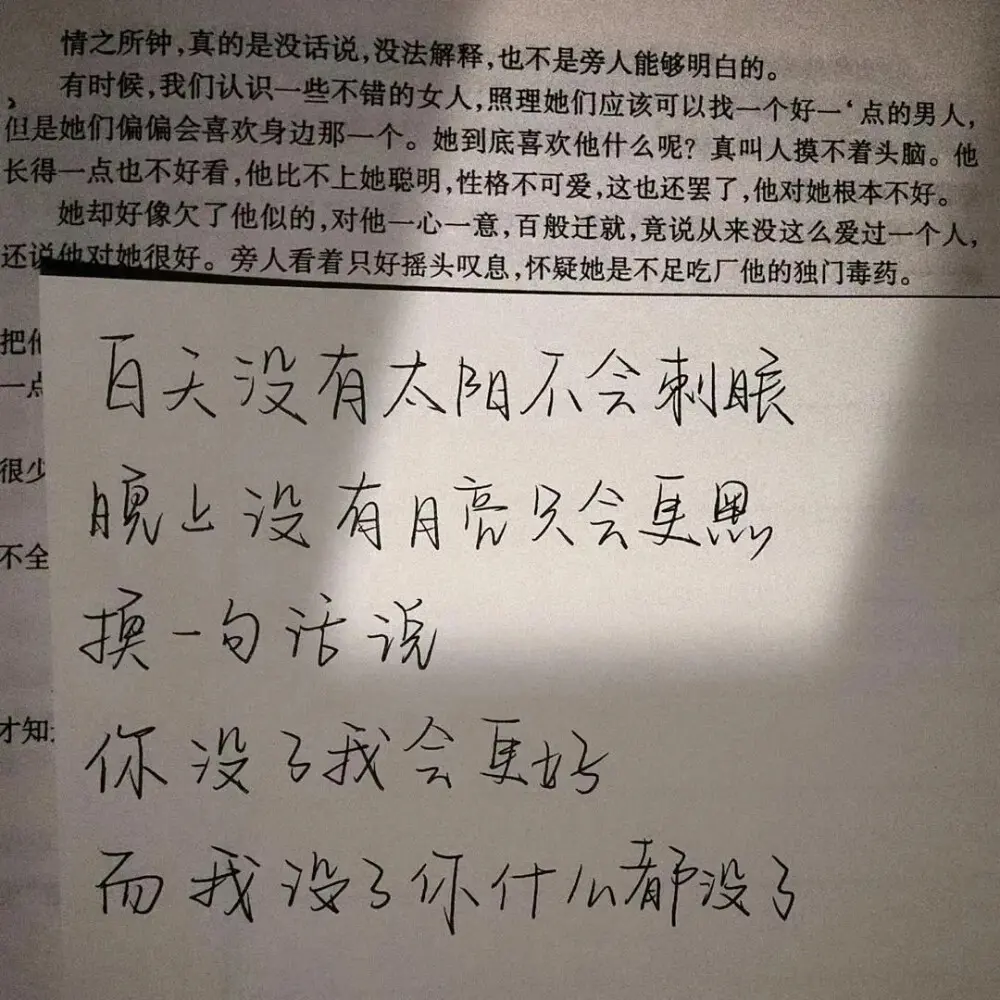 情之所钟,真的是没话说,没法解释,也不是旁人能够明白的。
有时候,我们认识一些不错的女人,照理她们应该可以找一个好一‘点的男人,
但是她们偏偏会喜欢身边那一个。她到底喜欢他什么呢?真叫人摸不着头脑。他
长得一点也不好看,他比不上她聪明,性格不可爱,这也还罢了,他对她根本不好。
她却好像欠了他似的,对他一心一意,百般迁就,竟说从来没这么爱过一个人,
还说他对她很好。旁人看着只好摇头叹息,怀疑她是不足吃厂他的独门毒药。
把他
一点
很少
不全
才知
白天没有太阳不会刺眼
晚上没有月亮只会更黑
换一句话说
你没了我会更好
而我没了你什么都没了